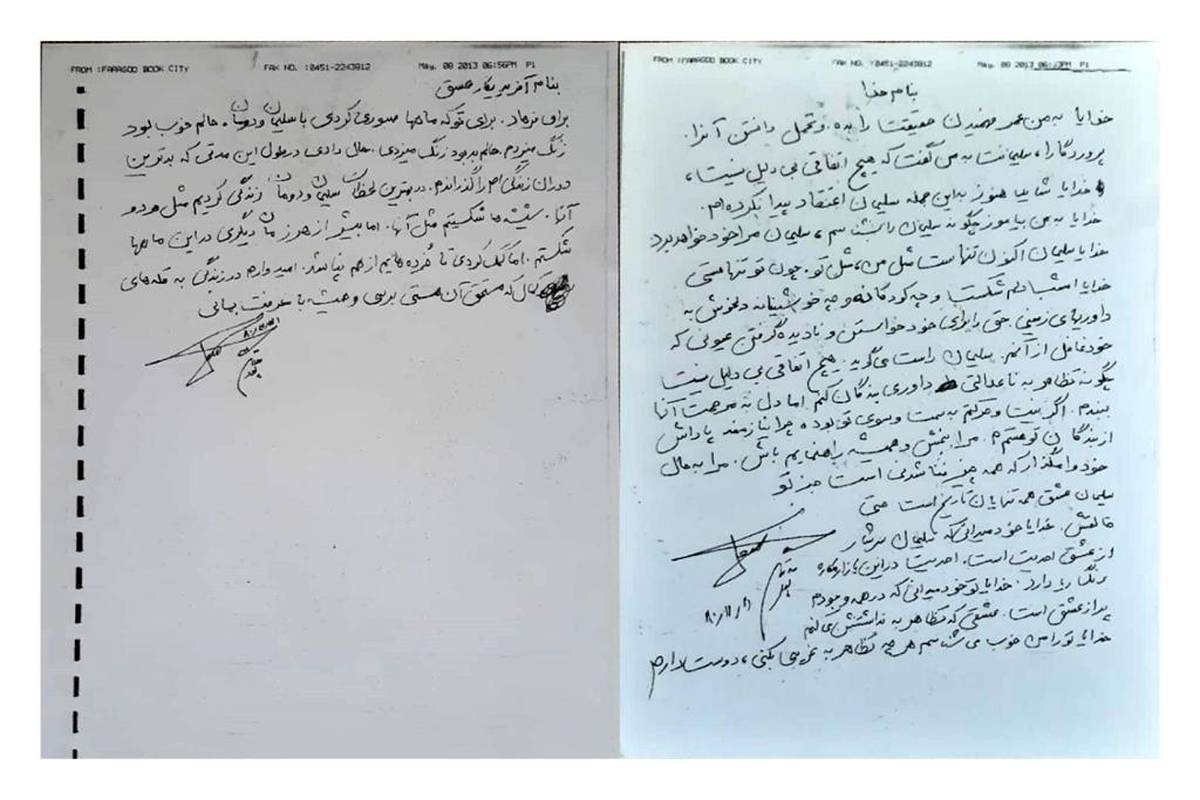 FROM :FARAGOO BOOK CITY FAX NO. :0451-2243812 May. 08 2013 06:56PM P1
بنام آفریدگار عشق
برای فرهاد. برای تو که ماهها صبوری کردی با سلیمان و دومان. حالم خوب بود
زنگ میزدم. حالم بد بود زنگ میزدی. حال دادی در طول این مدتی که بدترین
دوران زندگی ام را گذراندم. در بهترین لحظات سلیمان و دومان زندگی کردیم مثل هر دو
آنها. شکستیم مثل آنها. اما بیشتر از هر زمان دیگری در این ماهها
شکستم. اما کمک کردی تا خرده هایم از هم نپاشد. امیدوارم در زندگی به قله های
که مستحق آن هستی برسی و همیشه با معرفت بمانی
FROM :FARAGOO BOOK CITY FAX NO. :0451-2243812 May. 08 2013 P1
بنام خدا
خدایا به من عمر فهمیدن حقیقتت را بده. و تحمل دانستن آنرا.
پروردگارا، سلیمانت به من گفت که هیچ اتفاقی بی دلیل نیست،
خدایا شاید هنوز به این جمله سلیمان اعتقاد پیدا نکرده ام.
خدایا به من بیاموز چگونه سلیمان را بشناسم، سلیمان مرا خود خواهد برد
خدایا سلیمان اکنون تنهاست مثل من، مثل تو. چون تو تنها هستی
خدایا اشتباهاتم شکست و چه کودکانه و چه خوشبینانه دلخوش به
داوریهای زمینی. حق را برای خود خواستن و نادیده گرفتن عیوبی که
خود غافل از آنم. سلیمان راست می گوید. هیچ اتفاقی بی دلیل نیست
چگونه تظاهر به ناعدالتی داوری بندگان کنم اما دل به مرحمت آنها
ببندم. اگر نیت و حرکتم به سمت و سوی تو بوده چرا نیازمند پاداش
از بندگان تو هستم. مرا ببخش و همیشه راهنمایم باش. مرا به حال
خود وامگذار که همه چیز فنا شدنی است جز تو
سلیمان عشق همه تنهایان تاریخ است حتی
خالقش. خدایا خود میدانی که سلیمان سرشار
از عشق احدیت است. احدیت در این بازار مکاره
رنگ ریا دارد. خدایا تو خود میدانی که در همه وجودم
پر از عشق است. عشقی که تظاهر به نداشتنش می کنم
خدایا تو را من خوب می شناسم هر چه تظاهر به غریبی بکنی، دوستت دارم